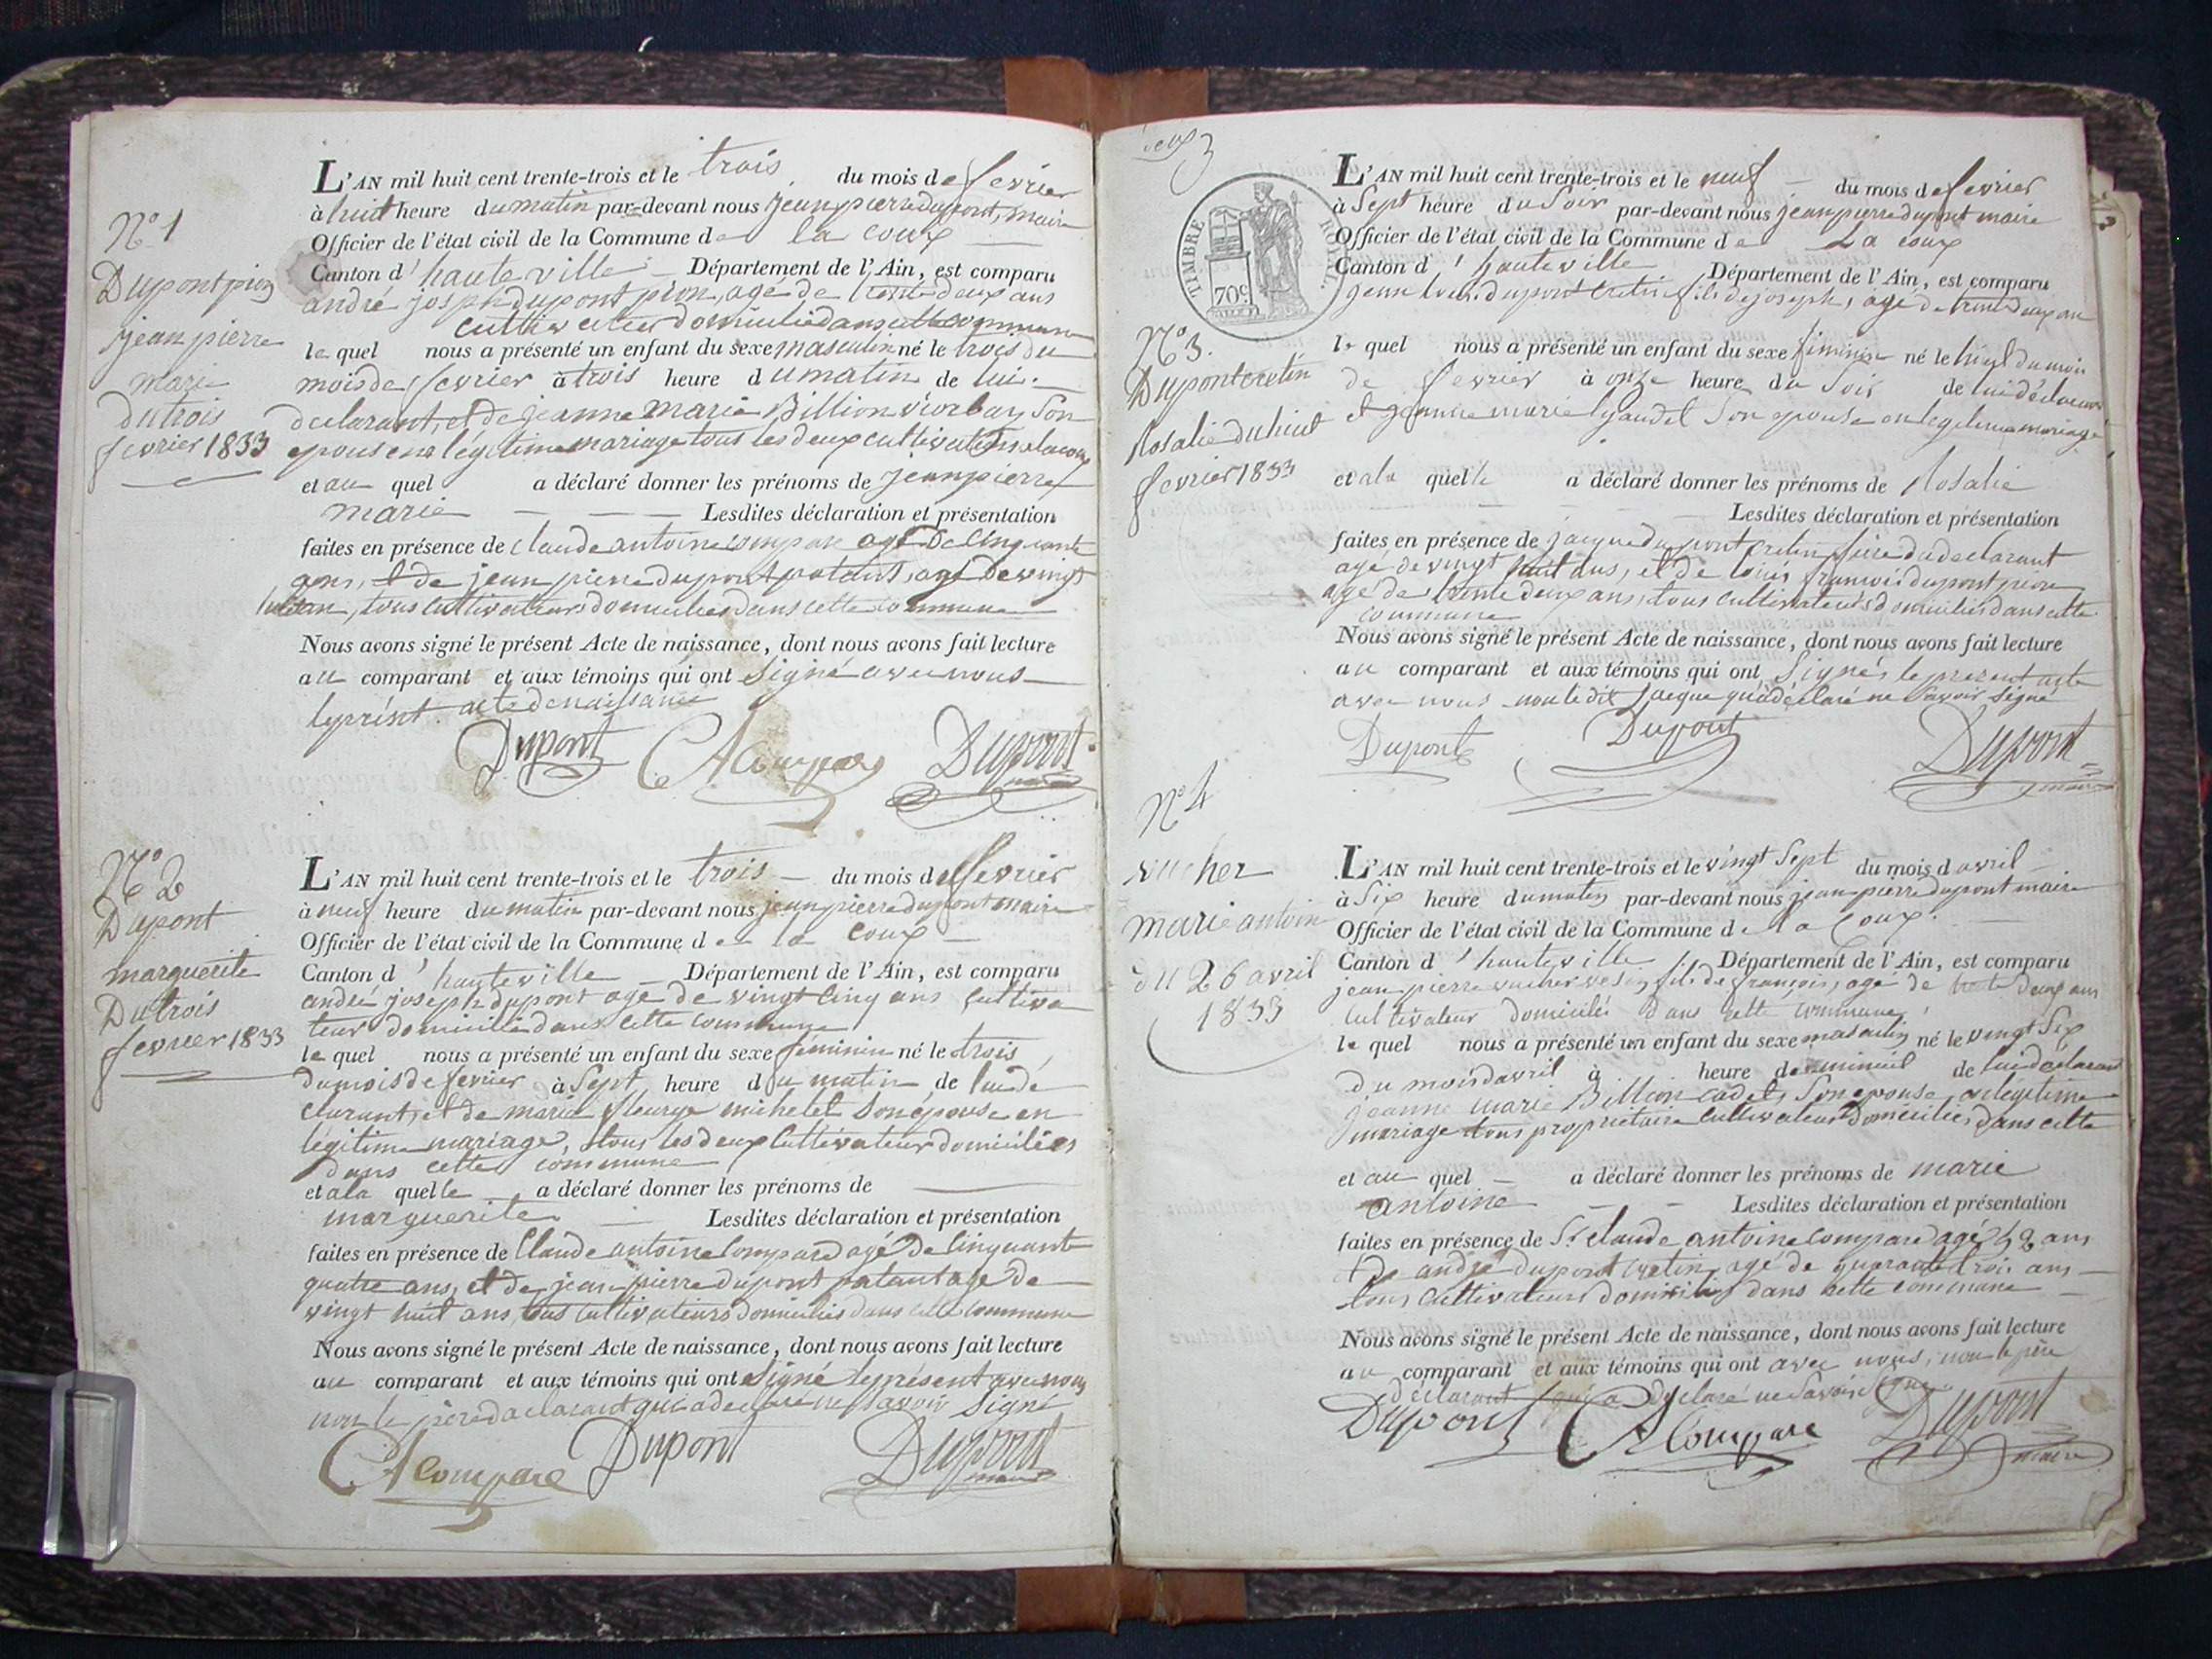 N° 1
Dupont pion
jean pierre
marie
du trois
fevrier 1833
L'AN mil huit cent trente-trois et le trois du mois de fevrier
à huit heure du matin par-devant nous jean pierre dupont, maire
Officier de l'état civil de la Commune de la coux
Canton d'hauteville Département de l'Ain, est comparu
andré josph dupont pion, agé de trente deux ans
cultivateur domicilié dans cette commune
le quel nous a présenté un enfant du sexe masculin né le trois du
mois de fevrier à trois heure du matin de lui
declarant, et de jeanne marie Billion son
epouse en légitime mariage tous les deux cultivateurs
et au quel a déclaré donner les prénoms de jean pierre
marie Lesdites déclaration et présentation
faites en présence de claude antoine compare agé de cinquante
ans, et de jean pierre dupont patant, agé de vingt
tous cultivateurs domiciliés dans cette commune
Nous avons signé le présent Acte de naissance, dont nous avons fait lecture
au comparant et aux témoins qui ont signé avec nous
le présent acte de naissance
Dupont CA Compare Dupont maire
N° 2
Dupont
marguerite
Du trois
fevrier 1833
L'AN mil huit cent trente-trois et le trois du mois de fevrier
à neuf heure du matin par-devant nous jean pierre dupont maire
Officier de l'état civil de la Commune de la coux
Canton d'hauteville Département de l'Ain, est comparu
andré joseph dupont agé de vingt cinq ans cultiva
teur domicilié dans cette commune
le quel nous a présenté un enfant du sexe féminin né le trois
du mois de fevrier à sept heure du matin de lui dé
clarant, et de marie michelet son épouse en
légitime mariage, tous les deux cultivateur domiciliés
dans cette commune
et a la quelle a déclaré donner les prénoms de
marguerite Lesdites déclaration et présentation
faites en présence de Claude antoine Compare agé de cinquante
quatre ans, et de jean pierre dupont patant agé de
vingt huit ans, tous cultivateurs domiciliés dans cette commune
Nous avons signé le présent Acte de naissance, dont nous avons fait lecture
au comparant et aux témoins qui ont signé le présent avec nous
non le père declarant qui a declaré ne savoir signé
CA compare Dupont Dupont maire
TIMBRE ROYAL
70c
N° 3.
Dupont cretin
Rosalie du huit
fevrier 1833
L'AN mil huit cent trente-trois et le neuf du mois de fevrier
à sept heure du soir par-devant nous jean pierre dupont maire
Officier de l'état civil de la Commune de La coux
Canton d'hauteville Département de l'Ain, est comparu
jean louis dupont cretin fils de joseph, agé de trente deux ans
le quel nous a présenté un enfant du sexe feminin né le huit du mois
de fevrier à onze heure du soir de lui déclarant
et jeanne marie lyaudet son epouse en legitime mariage
et a la quelle a déclaré donner les prénoms de Rosalie
Lesdites déclaration et présentation
faites en présence de jacque dupont cretin frère du declarant
agé de vingt huit ans, et de louis françois dupont pion
agé de trente deux ans, tous cultivateurs domiciliés dans cette
commune
Nous avons signé le présent Acte de naissance, dont nous avons fait lecture
au comparant et aux témoins qui ont signés le present acte
avec nous non le dit jacque qui a déclaré ne savoir signé
Dupont Dupont Dupont maire
N° 4
vucher
marie antoin
du 26 avril
1833
L'AN mil huit cent trente-trois et le vingt sept du mois d avril
à six heure du matin par-devant nous jean pierre dupont maire
Officier de l'état civil de la Commune de la Coux.
Canton d'hauteville Département de l'Ain, est comparu
jean pierre vucher fils de françois, agé de trente deux ans
cultivateur domicilié dans cette commune
le quel nous a présenté un enfant du sexe masculin né le vingt six
du mois d avril à heure de minuit de lui déclarant
jeanne marie Billion cadet, son epouse en légitime
mariage tous propriétaire cultivateurs domiciliés dans cette
et au quel a déclaré donner les prénoms de marie
antoine Lesdites déclaration et présentation
faites en présence de Sr claude antoine compare agé 52 ans
et de andré dupont cretin, agé de quarante trois ans
tous cultivateurs domiciliés dans cette commune
Nous avons signé le présent Acte de naissance, dont nous avons fait lecture
au comparant et aux témoins qui ont avec nous, non le père
declarant qui a declaré ne savoir signé
Dupont CA Compare Dupont maire